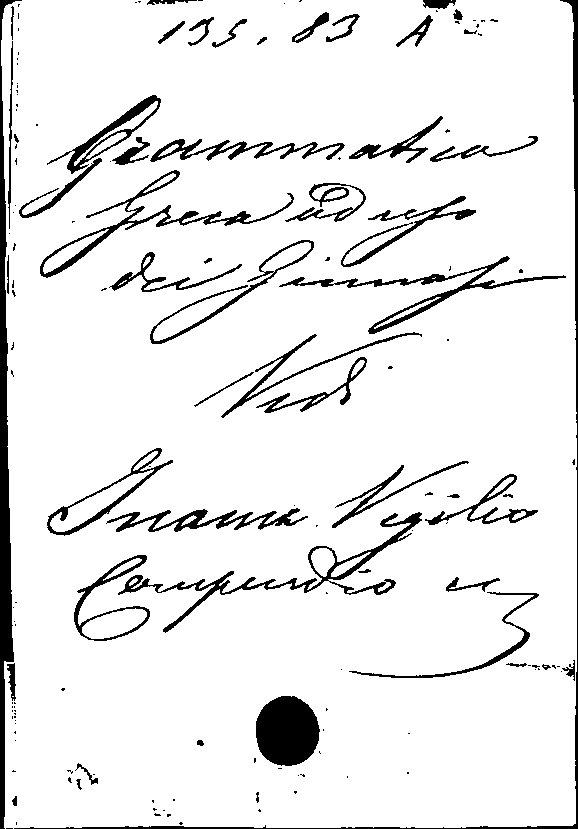 135. 83 A
Grammatica
Greca ad uso
dei Ginnasi
Vedi
Inama Vigilio
Compendio